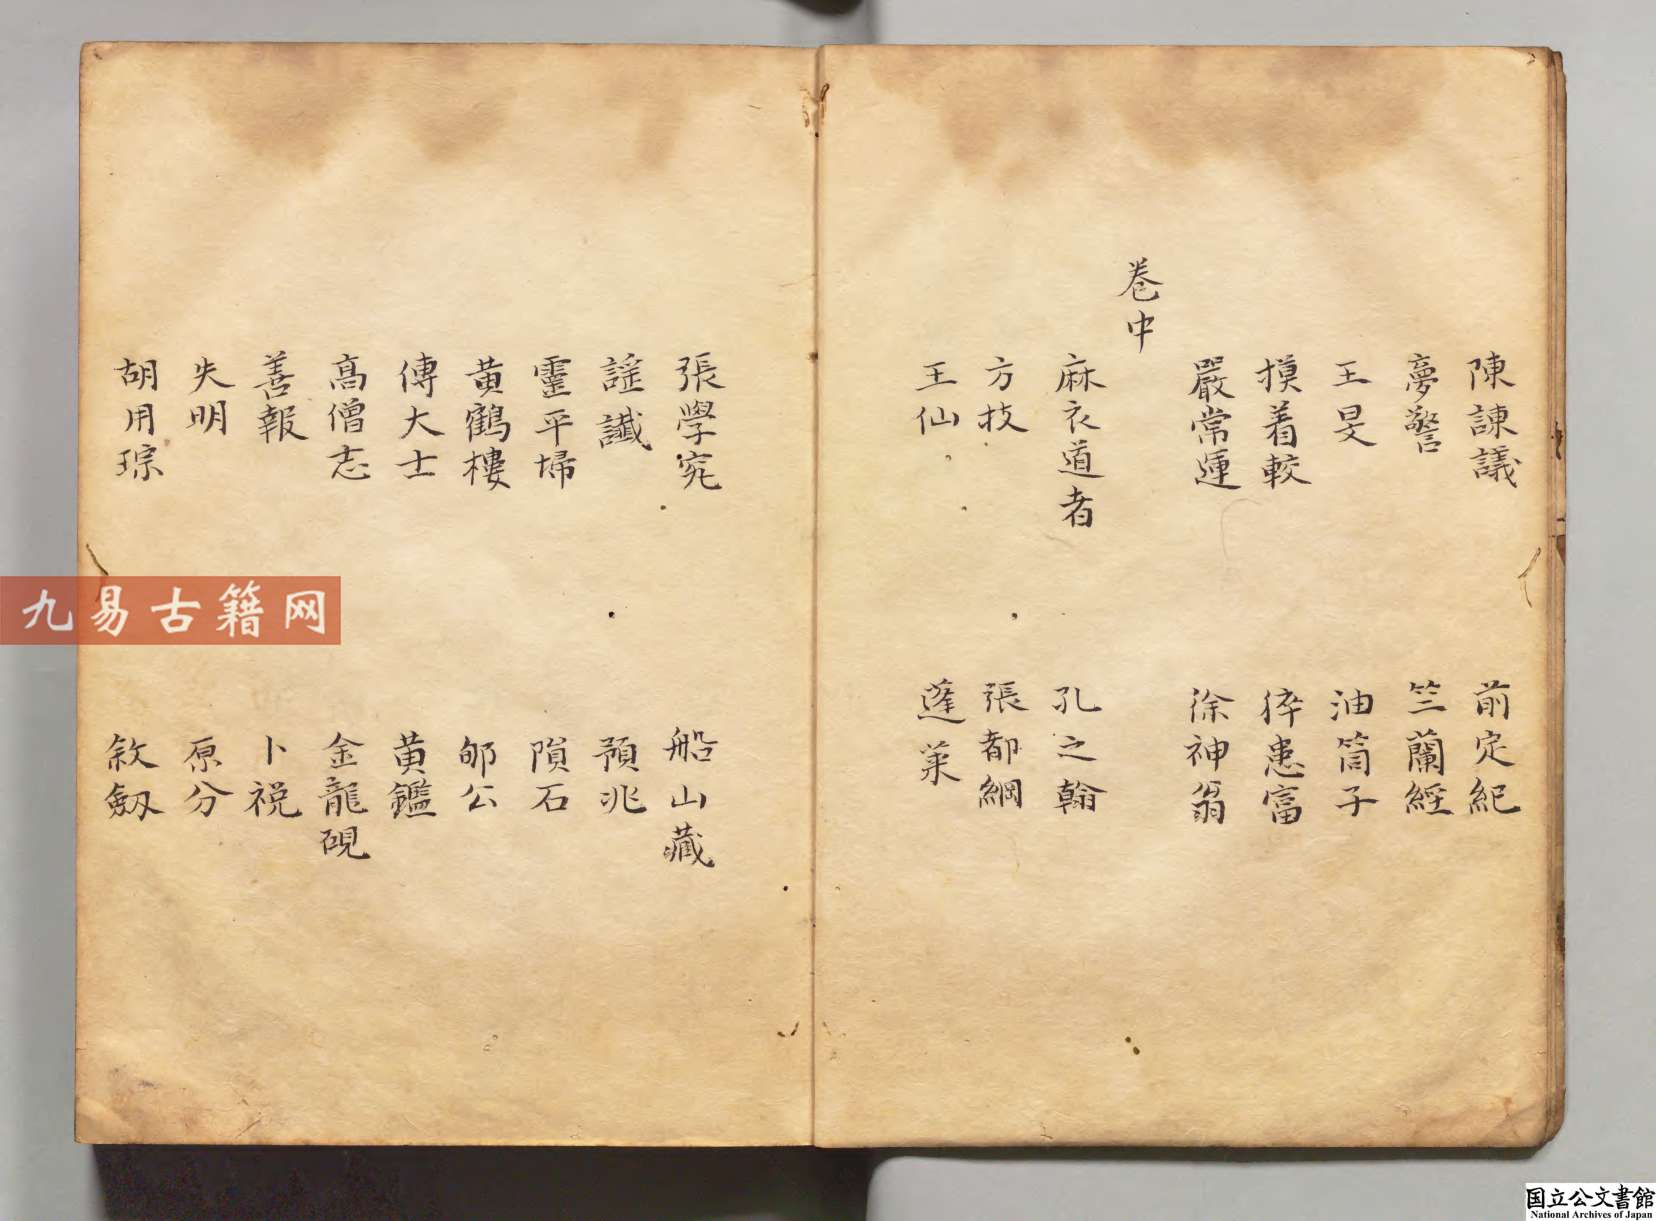 陳諫議　前定紀
夢警　竺蘭經
王旻　油筒子
摸着較　猝患富
嚴常運　徐神翁
卷中
麻衣道者　孔之翰
方技　張都綱
王仙　蓬萊
張學究　船山藏
謡讖　預兆
靈平埽　隕石
黄鶴樓　郇公
傅大士　黄鑑
髙僧志　金龍硯
善報　卜祝
失明　原分
胡用琮　敘劔
九易古籍网
国立公文書館
National Archives of Japan